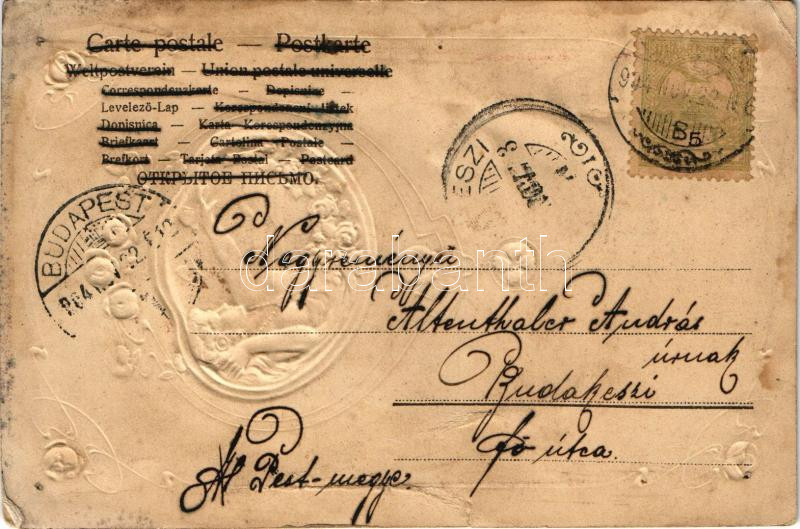 Carte postale — Postkarte
Weltpostverein — Union postale universelle
Correspondenzkarte — Dopisnice —
Levelező-Lap — Korespondenzní lístek
Dopisnica — Karta Korespondencyjna
Briefkaart — Cartolina Postale —
Brefkort — Tarjeta Postal — Postcard
ОТКРЫТОЕ ПИСЬМО.
BUDAPEST
ESZI
B5
darabanth
Nagyreményű
Altenthaler András
úrnak
Budakeszi
fő útca.
Pest-megye.